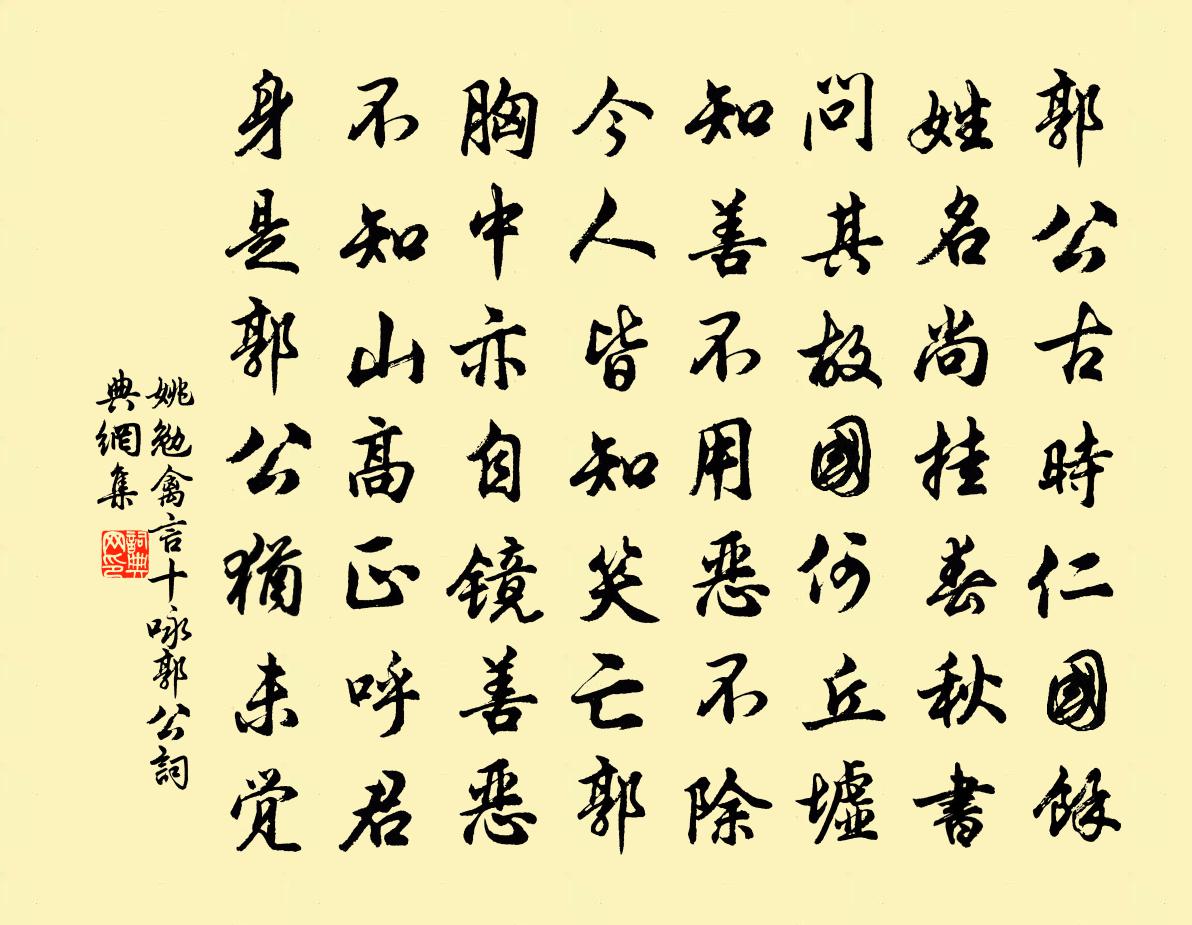 郭公古時仁國餘
姓名尚挂春秋書
問其故國何丘墟
知善不用惡不除
今人皆知笑亡郭
胸中亦自镜善惡
不知山高正呼君
身是郭公猶未觉
姚勉禽言十咏郭公詞
典網集
詞典
网印